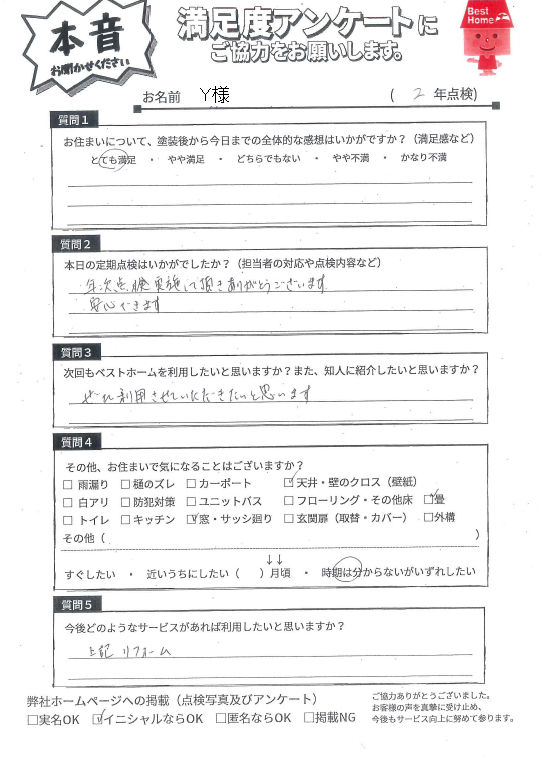 本音
お聞かせください
満足度アンケートに
ご協力をお願いします。
Best
Home
お名前 Y様 ( 2 年点検)
質問1
お住まいについて、塗装後から今日までの全体的な感想はいかがですか?(満足感など)
とても満足 ・ やや満足 ・ どちらでもない ・ やや不満 ・ かなり不満
質問2
本日の定期点検はいかがでしたか?(担当者の対応や点検内容など)
年次点検実施して頂きありがとうございます
安心できます
質問3
次回もベストホームを利用したいと思いますか?また、知人に紹介したいと思いますか?
ぜひ利用させていただきたいと思います
質問4
その他、お住まいで気になることはございますか?
□ 雨漏り □ 樋のズレ □ カーポート ☑ 天井・壁のクロス(壁紙)
□ 白アリ □ 防犯対策 □ ユニットバス □ フローリング・その他床 ☑畳
□ トイレ □ キッチン ☑ 窓・サッシ廻り □ 玄関扉(取替・カバー) □外構
その他( )
↓↓
すぐしたい ・ 近いうちにしたい( )月頃 ・ 時期は分からないがいずれしたい
質問5
今後どのようなサービスがあれば利用したいと思いますか?
上記リフォーム
弊社ホームページへの掲載(点検写真及びアンケート)
□実名OK ☑イニシャルならOK □匿名ならOK □掲載NG
ご協力ありがとうございました。
お客様の声を真摯に受け止め、
今後もサービス向上に努めて参ります。